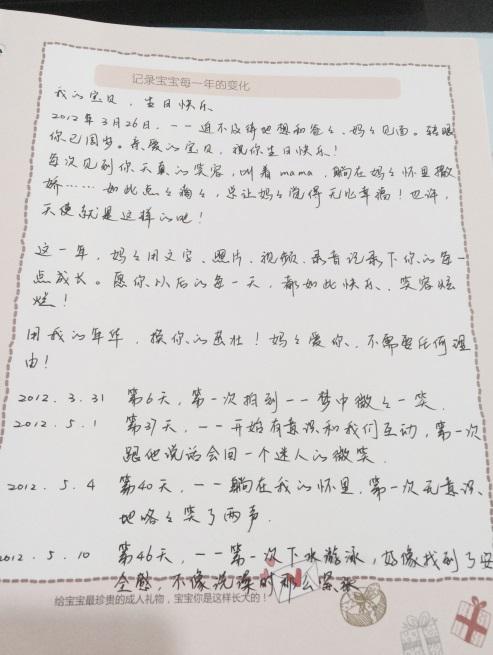 记录宝宝每一年的变化
我的宝贝，生日快乐
2012年3月26日，一一迫不及待地想和爸々、妈々见面。转眼
你已周岁。亲爱的宝贝，祝你生日快乐！
每次见到你天真的笑容，叫着mama，躺在妈々怀里撒
娇……如此点々滴々，总让妈々觉得无比幸福！也许，
天使就是这样的吧！
这一年，妈々用文字、照片、视频、录音记录下你的每一
点成长。愿你以后的每一天，都如此快乐、笑容炫
烂！
用我的年华，换你的茁壮！妈々爱你、不需要任何理
由！
2012.3.31 第6天，第一次拍到一一梦中微々一笑.
2012.5.1 第37天，一一开始有意识和我们互动，第一次
跟他说话会回一个迷人的微笑.
2012.5.4 第40天，一一躺在我的怀里，第一次无意识
地咯々笑了两声.
2012.5.10 第46天，一一第一次下水游泳，好像找到了安
全感，不像洗澡时那么紧张
给宝宝最珍贵的成人礼物，宝宝你是这样长大的！